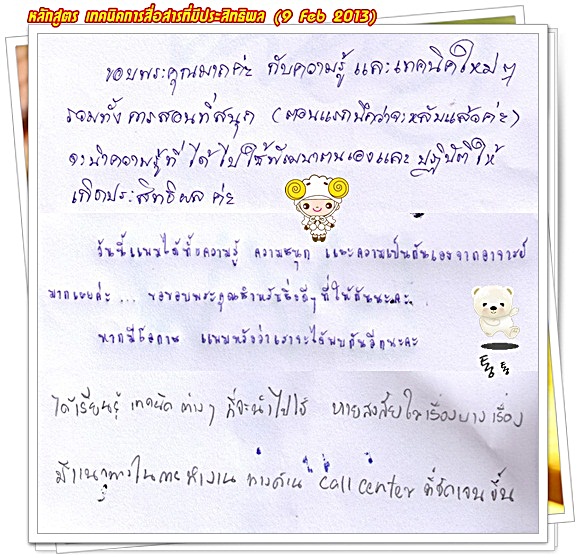 หลักสูตร เทคนิคการสื่อสารที่มีประสิทธิผล (9 Feb 2013)
ขอบพระคุณมากค่ะ กับความรู้ และเทคนิคใหม่ๆ
รวมทั้งการสอนที่สนุก (ตอนแรกนึกว่าจะหลับแล้วค่ะ)
จะนำความรู้ที่ได้ไปใช้พัฒนาตนเองและปฏิบัติให้
เกิดประสิทธิผลค่ะ
วันนี้แพมได้ทั้งความรู้ ความสนุก และความเป็นกันเองจากอาจารย์
มากเลยค่ะ ... ขอขอบพระคุณสำหรับสิ่งดีๆ ที่ให้กันนะคะ
หากมีโอกาส แพมหวังว่าเราจะได้พบกันอีกนะคะ
ได้เรียนรู้ เทคนิค ต่างๆ ที่จะนำไปใช้ หายสงสัยในเรื่องบางเรื่อง
มีแนวทางในการทำงาน ทางด้าน Call Center ที่ชัดเจนขึ้น